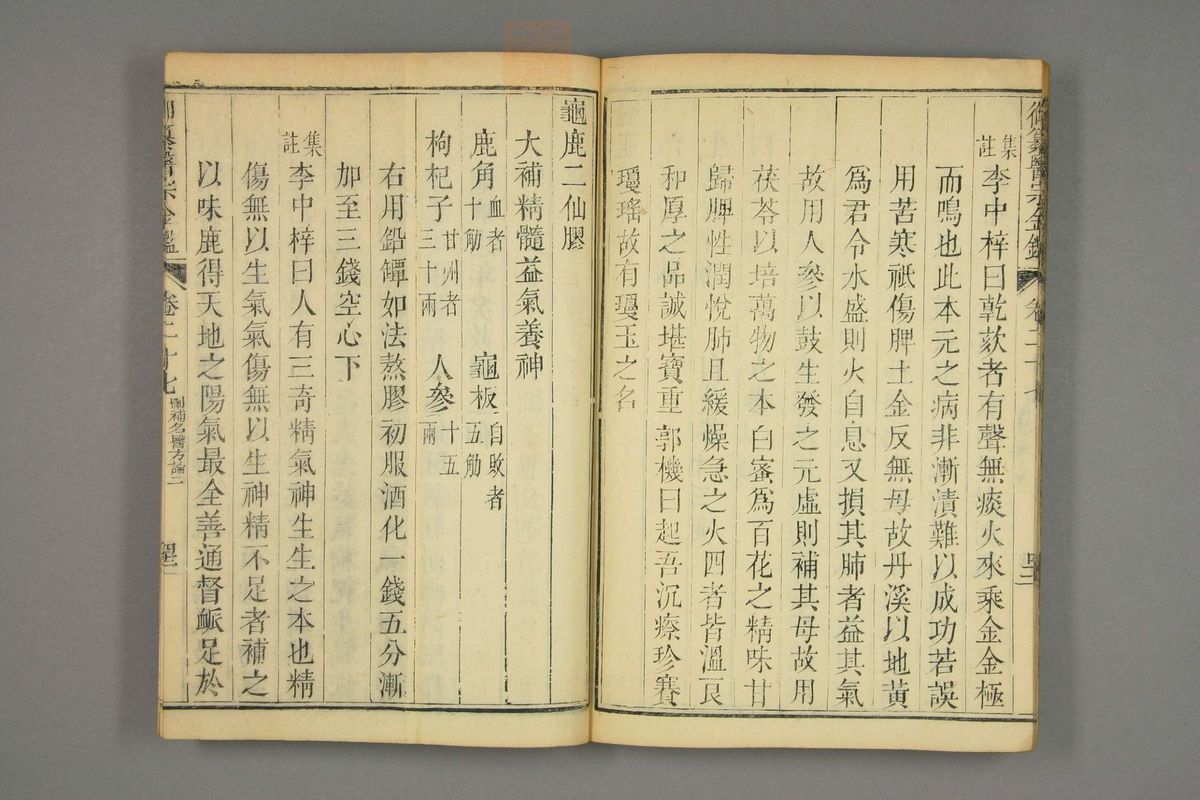 御纂醫宗金鑑 卷二十七 四二
集註李中梓曰乾欬者有聲無痰火來乘金金極
而鳴也此本元之病非漸漬難以成功若誤
用苦寒祇傷脾土金反無母故丹溪以地黄
爲君令水盛則火自息又損其肺者益其氣
故用人參以鼓生發之元虛則補其母故用
茯苓以培萬物之本白蜜爲百花之精味甘
歸脾性潤悅肺且緩燥急之火四者皆溫良
和厚之品誠堪寶重 郭機曰起吾沉瘵珍賽
瓊瑤故有瓊玉之名
龜鹿二仙膠
大補精髓益氣養神
鹿角血者十觔 龜板自敗者五觔
枸杞子甘州者三十兩 人參十五兩
右用鉛罈如法熬膠初服酒化一錢五分漸
加至三錢空心下
集註李中梓曰人有三奇精氣神生生之本也精
傷無以生氣氣傷無以生神精不足者補之
以味鹿得天地之陽氣最全善通督脈足於
御纂醫宗金鑑 卷二十七 刪補名醫方論二